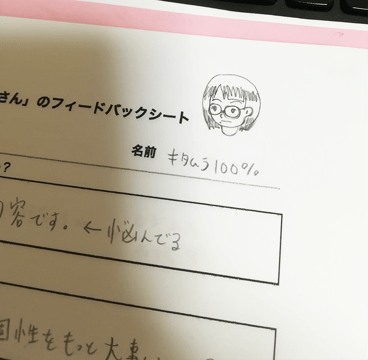 さん」のフィードバックシート
名前 キタムラ100%
?
容です。←悩んでる
個性をもっと大事